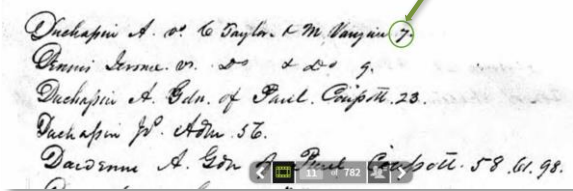 Duchassin A. vs. C Taylor & M. Vaugine 7.
Dennis Jerome. vs. Do & Do 9.
Duchassin A. Gdn. of Paul. 23.
Duchassin Jo. Adm. 56.
Dardenne A. Gdn of Paul 58. 61. 98.
11 of 782